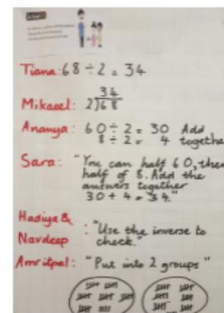 Tiana: 68 ÷ 2 = 34
34
Mikaeel: 2)68
Ananya: 60 ÷ 2 = 30 Add
8 ÷ 2 = 4 togethe
Sara: "You can half 60, then
half of 8. Add the
answers together
30 + 4 = 34."
Hadiya &
Navdeep : "Use the inverse to
check."
Amritpal: "Put into 2 groups"